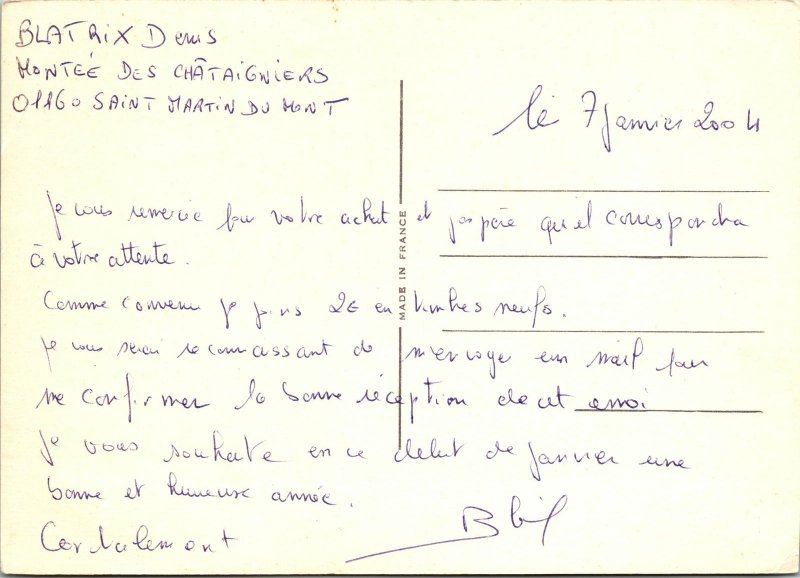 BLATRIX Denis
MONTEÉ DES CHÂTAIGNIERS
01160 SAINT MARTIN DU MONT
le 7 janvier 2004
je vous remercie pour votre achat et j'espère qu'il correspondra
à votre attente.
Comme convenu je joins 2€ en timbres neufs.
je vous serai reconnaissant de m'envoyer un mail pour
me confirmer la bonne réception de cet envoi
je vous souhaite en ce début de janvier une
bonne et heureuse année.
Cordialement
MADE IN FRANCE